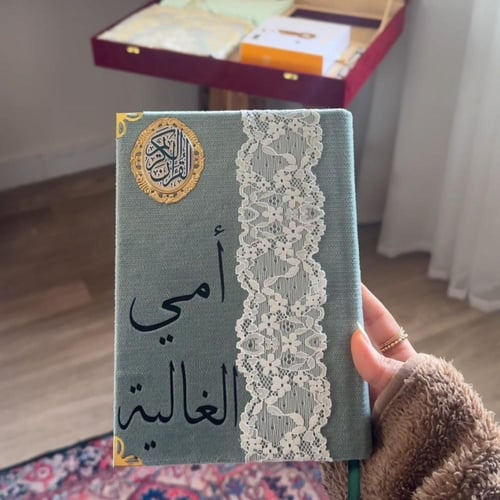 القرآن الكريم
أمي
الغالية